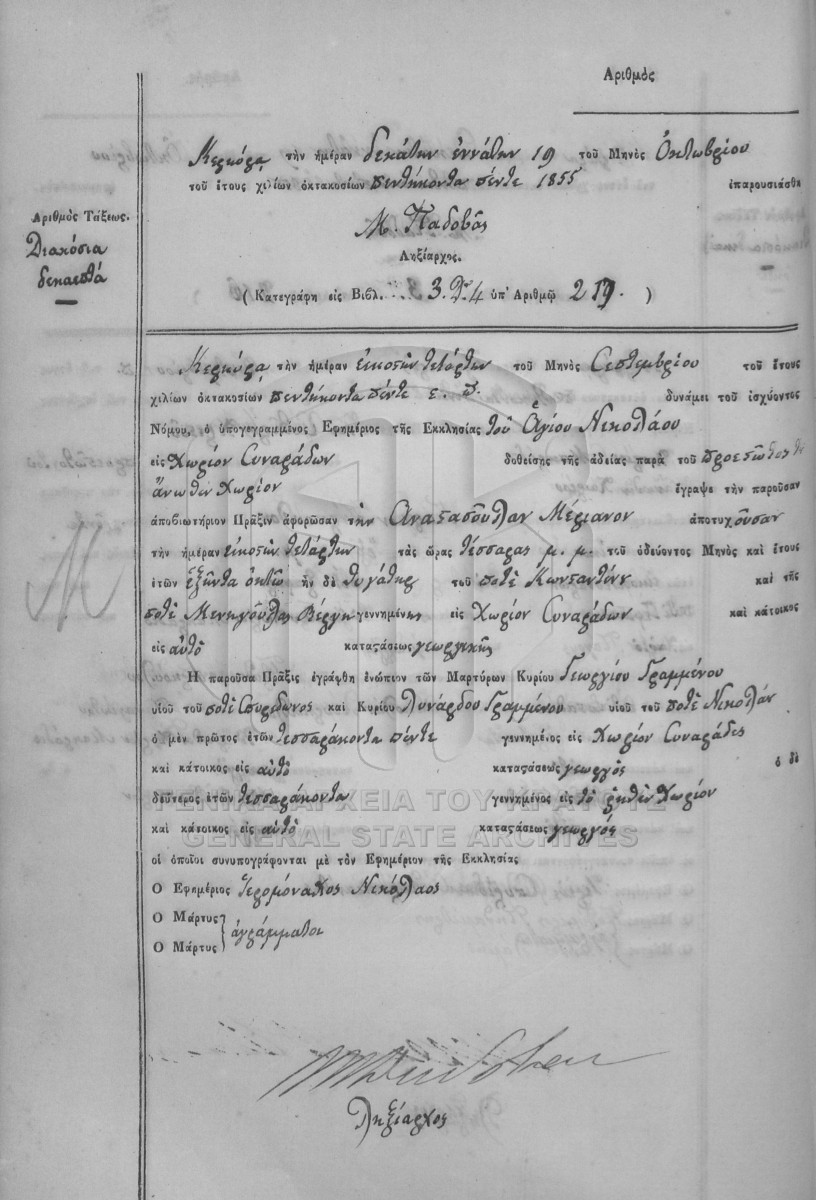 Αριθμός
Κερκύρα τὴν ἡμέραν δεκάτην ἐννάτην 19 τοῦ Μηνὸς Ὀκτωβρίου
τοῦ ἔτους χιλίων ὀκτακοσίων πεντήκοντα πέντε 1855 ἐπαρουσιάσθη
Μ. Παδοβᾶς
Ληξίαρχος.
Ἀριθμὸς Τάξεως.
Διακόσια
δεκαεπτά
( Κατεγράφη εἰς Βιβλ. 3 4 ὑπ' Ἀριθμῷ 217. )
Κερκύρα τὴν ἡμέραν εἰκοστὴν τετάρτην τοῦ Μηνὸς Σεπτεμβρίου τοῦ ἔτους
χιλίων ὀκτακοσίων πεντήκοντα πέντε ε. π. δυνάμει τοῦ ἰσχύοντος
Νόμου, ὁ ὑπογεγραμμένος Ἐφημέριος τῆς Ἐκκλησίας τοῦ Ἁγίου Νικολάου
εἰς Χωρίον Συναράδων δοθείσης τῆς ἀδείας παρὰ τοῦ
ἄνωθεν Χωρίον ἔγραψε τὴν παροῦσαν
ἀποβιωτήριον Πρᾶξιν ἀφορῶσαν τὴν Αναστασοῦλαν Μέριανον ἀποτυχοῦσαν
τὴν ἡμέραν εἰκοστὴν τετάρτην τὰς ὥρας τέσσαρας μ. μ. τοῦ ὁδεύοντος Μηνὸς καὶ ἔτους
ἐτῶν ἑξῆντα ὀκτὼ ἦν δὲ θυγάτηρ τοῦ ποτὲ Κωνσταντίνου καὶ τῆς
ποτὲ γεννημένης εἰς Χωρίον Συναράδων καὶ κάτοικος
εἰς αὐτὸ καταστάσεως γεωργικῆς
Ἡ παροῦσα Πρᾶξις ἐγράφθη ἐνώπιον τῶν Μαρτύρων Κυρίου Γεωργίου Γραμμένου
υἱοῦ τοῦ ποτὲ Σπυρίδωνος καὶ Κυρίου Λινάρδου Γραμμένου υἱοῦ τοῦ ποτὲ Νικολάου
ὁ μὲν πρῶτος ἐτῶν τεσσαράκοντα πέντε γεννημένος εἰς Χωρίον Συναράδες
καὶ κάτοικος εἰς αὐτὸ καταστάσεως γεωργὸς ὁ δὲ
δεύτερος ἐτῶν τεσσαράκοντα γεννημένος εἰς τὸ ῥηθὲν Χωρίον
ΓΕΝΙΚΑ ΑΡΧΕΙΑ ΤΟΥ ΚΡΑΤΟΥΣ
καὶ κάτοικος εἰς αὐτὸ καταστάσεως γεωργός
GENERAL STATE ARCHIVES
οἱ ὁποῖοι συνυπογράφονται μὲ τὸν Ἐφημέριον τῆς Ἐκκλησίας
Ὁ Ἐφημέριος Ἱερομόναχος Νικόλαος
Ὁ Μάρτυς
ἀγράμματοι
Ὁ Μάρτυς
Ληξίαρχος